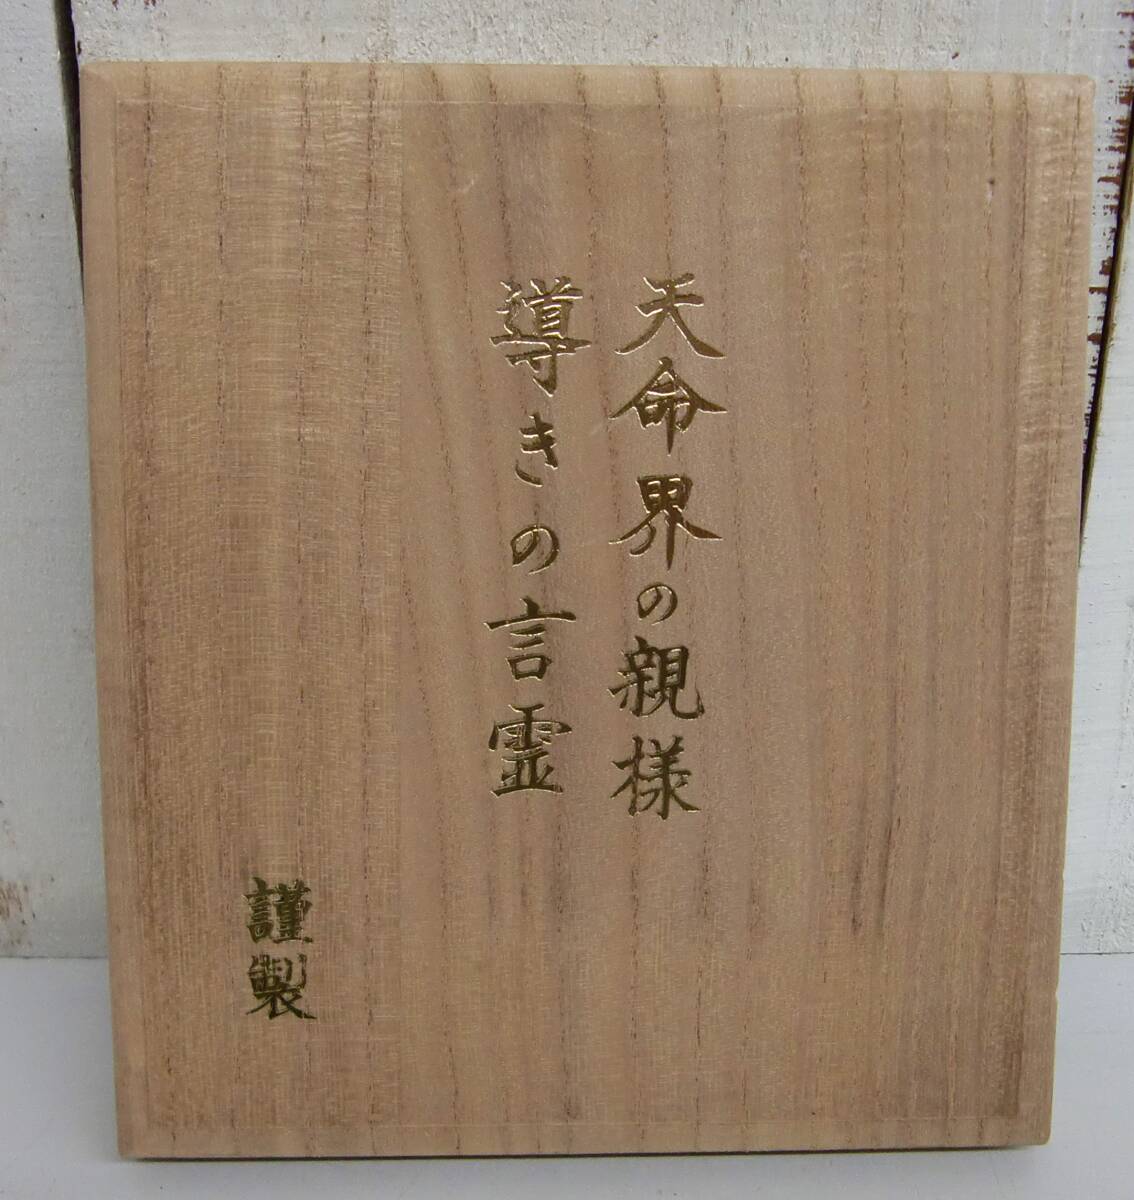 天命界の親様
導きの言霊
謹製